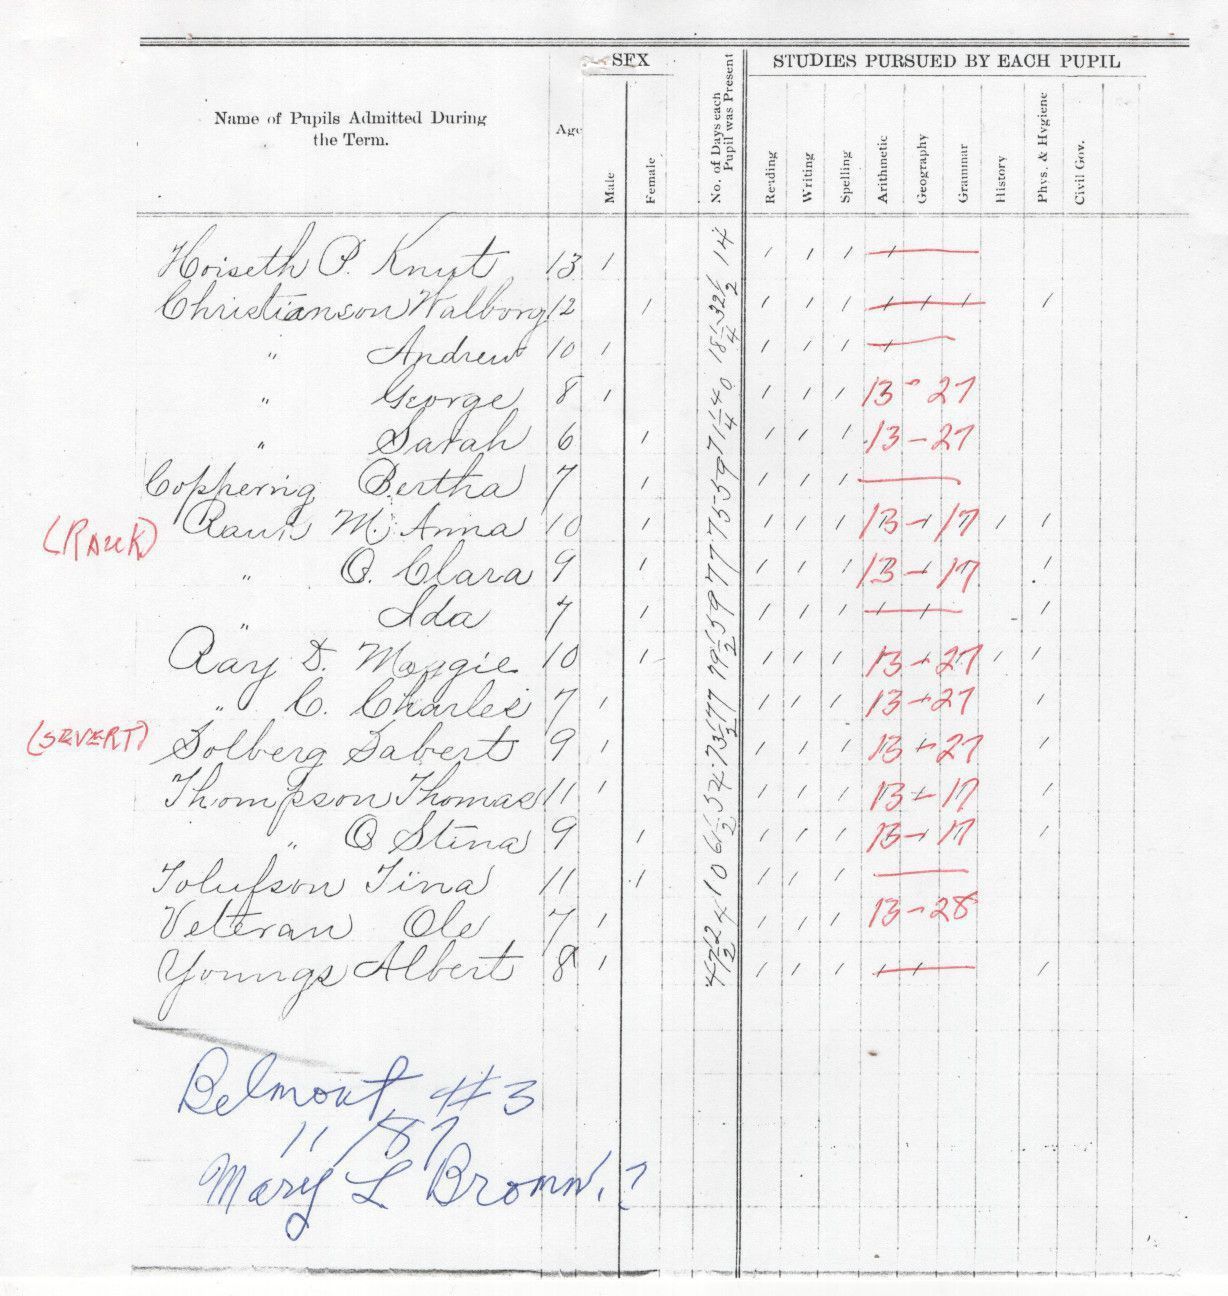 SEX
STUDIES PURSUED BY EACH PUPIL
Name of Pupils Admitted During
the Term.
Age
Male
Female
No. of Days each
Pupil was Present
Reading
Writing
Spelling
Arithmetic
Geography
Grammar
History
Phys. & Hygiene
Civil Gov.
Hoiseth P. Knut 13 / 14 / / / /
Christianson Walborg 12 / 32 1/2 / / / / / / /
" Andrew 10 / 18 1/4 / / / /
" George 8 / 40 / / / 13 - 27
" Sarah 6 / 71 1/4 / / / 13 - 27
Coppering Bertha 7 / 59 / / /
(RAUK) Rauk M. Anna 10 / 75 / / / 13 - 17 / /
" O. Clara 9 / 77 / / / 13 - 17 /
" Ida 7 / 59 / / / / / /
Ray D. Maggie 10 / 79 1/2 / / / 13 - 27 / /
" C. Charles 7 / 77 / / / 13 - 27 /
(SEVERT) Solberg Sabert 9 / 73 1/2 / / / 13 - 27 /
Thompson Thomas 11 / 54 / / / 13 - 17 /
" O Stina 9 / 61 1/2 / / / 13 - 17 /
Tolufson Tina 11 / 10 / / /
Veteran Ole 7 / 24 / / / 13 - 28
Youngs Albert 8 / 47 1/2 / / / / / /
Belmont #3
11/87
Mary L Brown.?